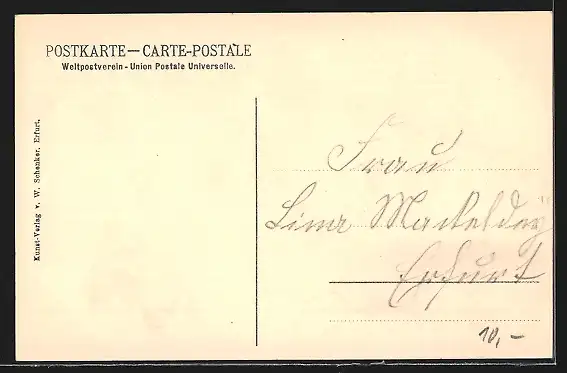 POSTKARTE — CARTE-POSTALE
Weltpostverein - Union Postale Universelle.
Kunst-Verlag v. W. Schenker, Erfurt.
Frau
Erfurt
10,-